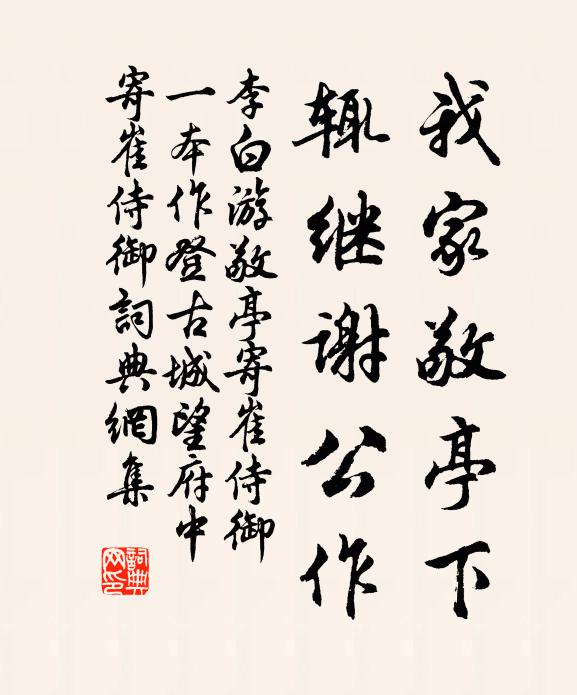 我家敬亭下
辄继谢公作
李白游敬亭寄崔侍御
一本作登古城望府中
寄崔侍御詞典網集
詞典網印